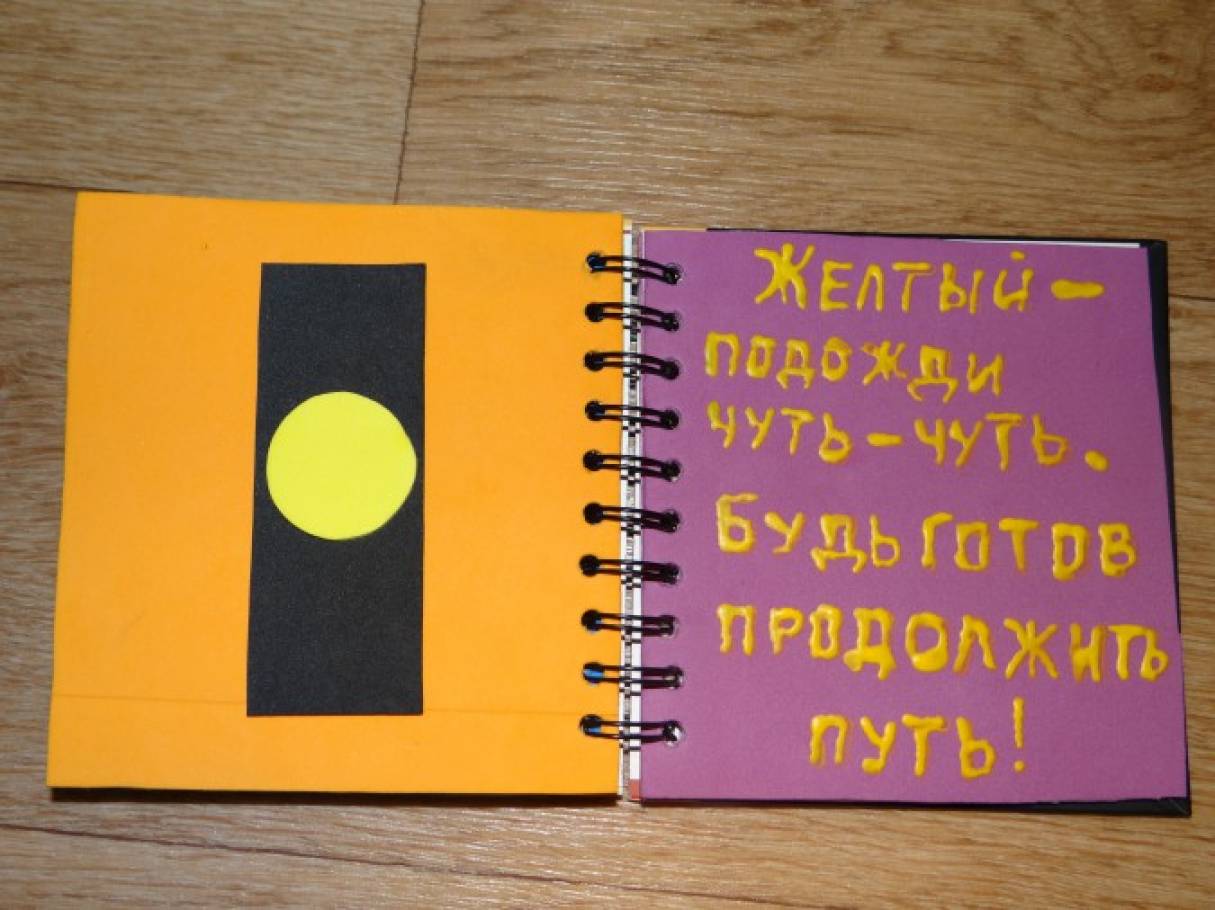 ЖЕЛТЫЙ –
ПОДОЖДИ
ЧУТЬ – ЧУТЬ.
БУДЬ ГОТОВ
ПРОДОЛЖИТЬ
ПУТЬ!